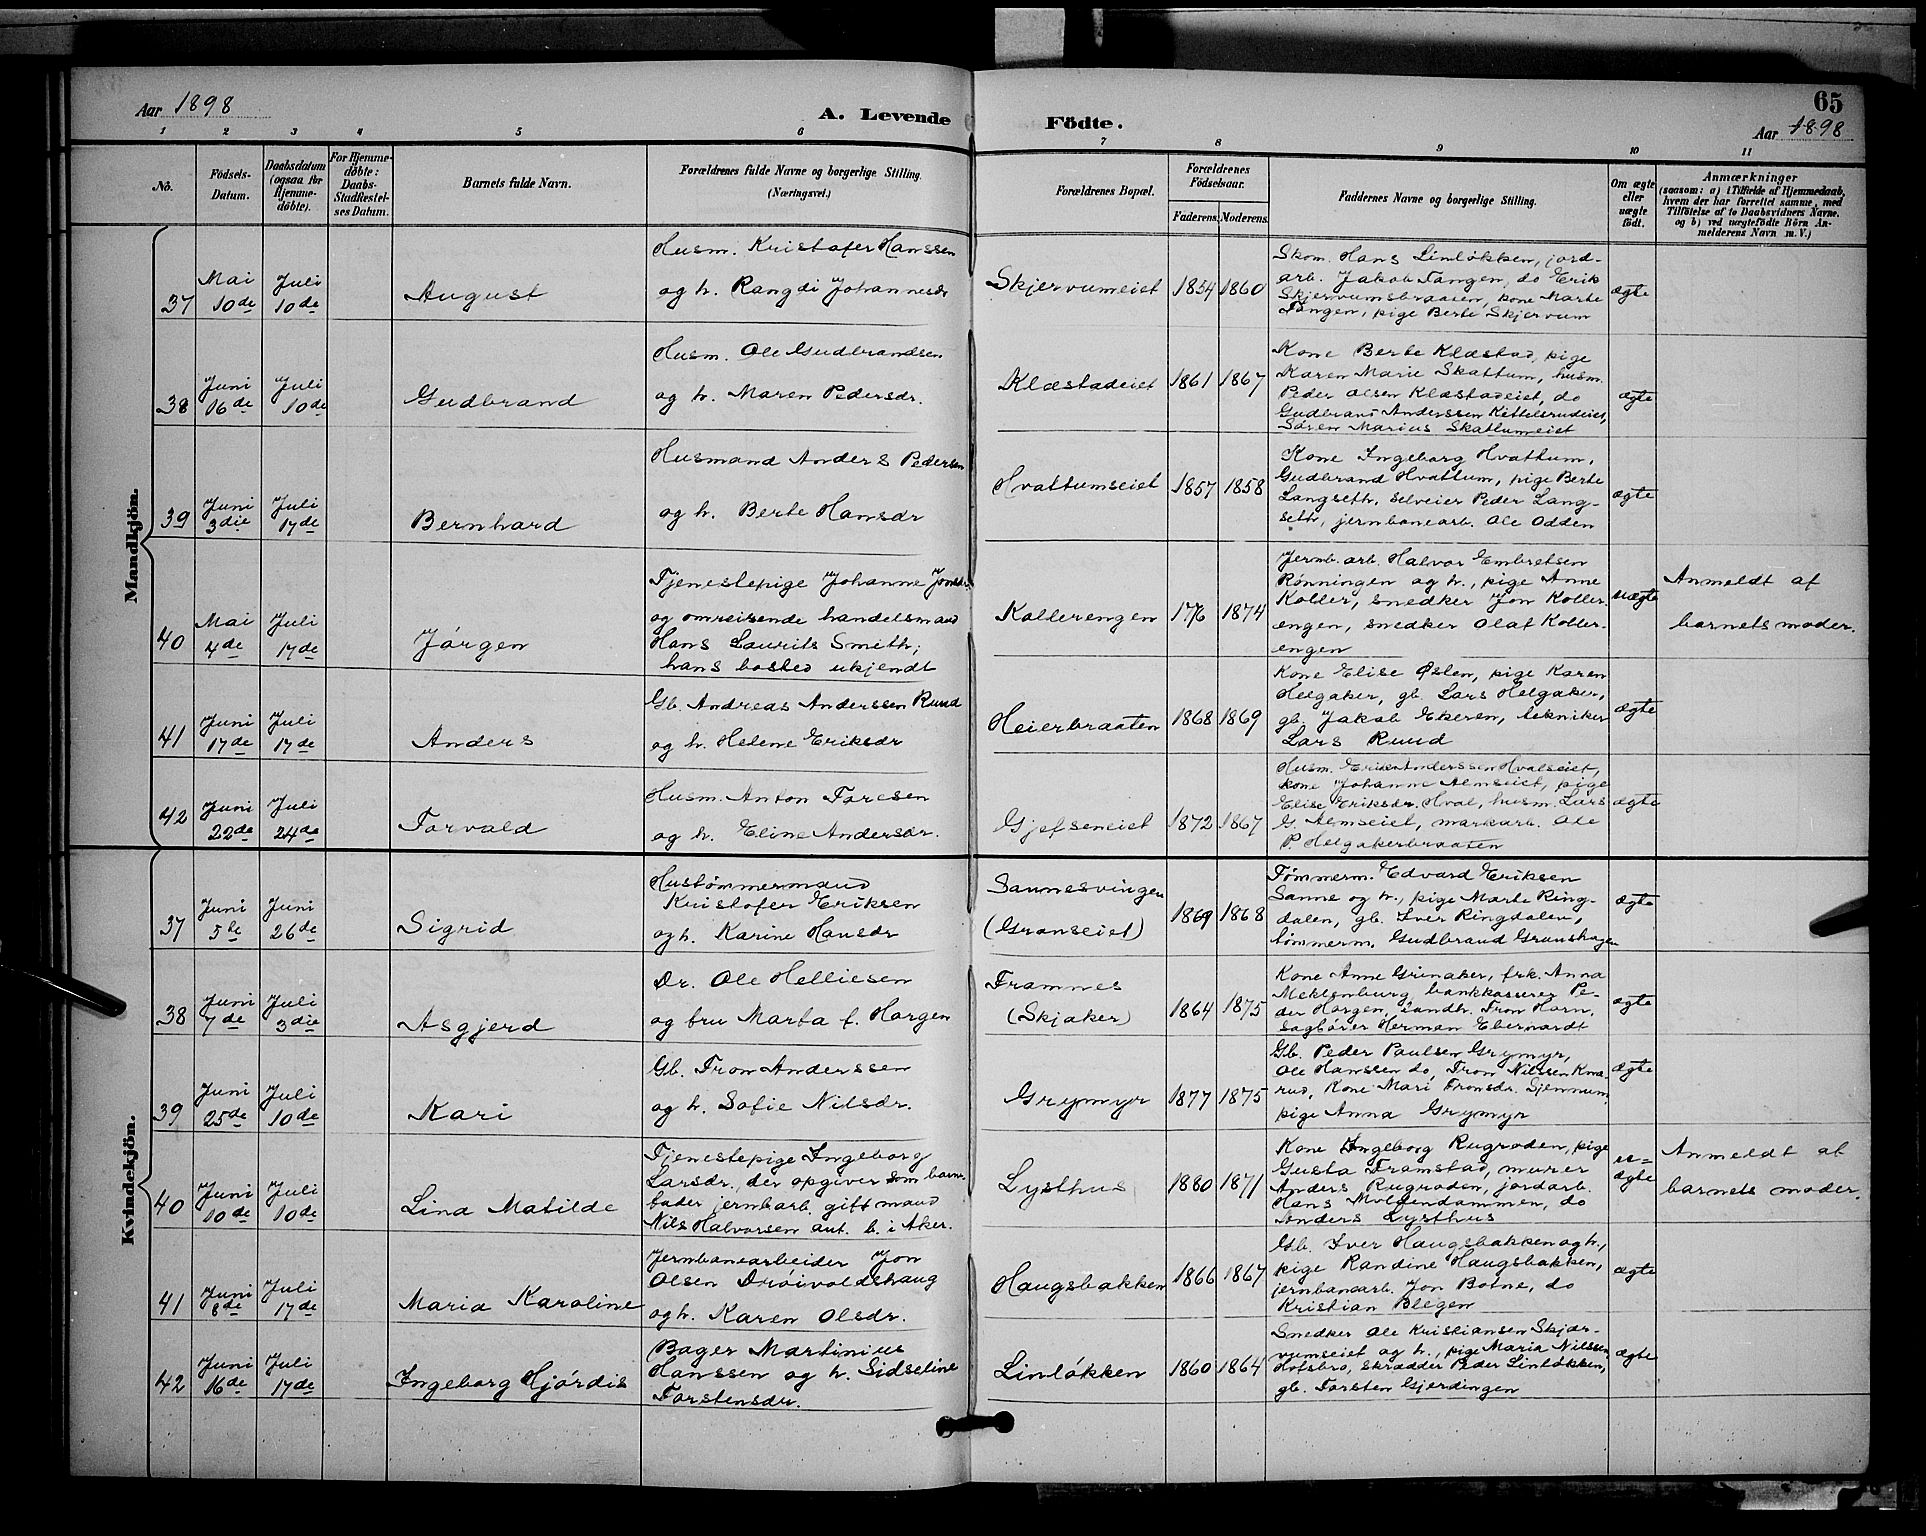 Aar 1898
A. Levende Födte.
65
Aar 1898
1 2 3 4 5 6 7 8 9 10 11
No.
Födsels-Datum.
Daabsdatum (ogsaa for Hjemme-döbte).
For Hjemme-döbte: Daabs-Stadfæstel-ses Datum.
Barnets fulde Navn.
Forældrenes fulde Navne og borgerlige Stilling.
(Næringsvei.)
Forældrenes Bopæl.
Forældrenes Födselsaar.
Faderens. Moderens.
Faddernes Navne og borgerlige Stilling.
Om ægte eller uægte födt.
Anmærkninger
(saasom: a) i Tilfælde af Hjemmedaab,
hvem der har forrettet samme, med
Tilföielse af to Daabsvidners Navne.
og b) ved uægtefödte Börn An-
melderens Navn m. V.)
Mandkjön.
37
Mai 10de
Juli 10de
August
Husm. Kristofer Hanssen
og h. Rangdi Johannesdr
Skjervumeiet
1854 1860
Skom. Hans Linløkken, jord-
arb. Jakob Tangen, do Erik
Skjervumsbraaten, kone Marte
Tangen, pige Berte Skjervum
ægte
38
Juni 16de
Juli 10de
Gudbrand
Husm. Ole Gudbrandsen
og h. Maren Pedersdr.
Klæstadeiet
1861 1867
Kone Berte Klæstad, pige
Karen Marie Skattum, husm.
Peder Olsen Klæstadeiet, do
Gudbrand Anderssen Kittelsrudeiet,
Søren Marius Skattumeiet
ægte
39
Juni 3die
Juli 17de
Bernhard
Husmand Anders Pedersen
og h. Berte Hansdr
Hvattumseiet
1857 1858
Kone Ingeborg Hvattum,
Gudbrand Hvattum, pige Berte
Langseth, selveier Peder Lang-
seth, jernbanearb. Ole Odden
ægte
40
Mai 4de
Juli 17de
Jørgen
Tjenestepige Johanne Jonsdr.
og omreisende handelsmand
Hans Laurits Smith;
hans bosted ukjendt
Kollerengen
1874
Jernb. arb. Halvor Embretsen
Rønningen og h., pige Anne
Koller, snedker Jon Koller-
engen, snedker Olaf Koller-
engen
uægte
Anmeldt af
barnets moder.
41
Juni 17de
Juli 17de
Anders
Gb. Andreas Anderssen Ruud
og h. Helene Eriksdr
Heierbraaten
1868 1869
Kone Elise Østen, pige Karen
Helgaker, gb. Lars Helgaker,
gb. Jakob Ekeren, tekniker
Lars Ruud
ægte
42
Juni 22de
Juli 24de
Torvald
Husm. Anton Toresen
og h. Eline Andersdr.
Gjefseneiet
1872 1867
Husm. Erik Anderssen Hvalseiet,
kone Johanne Almseiet, pige
Elise Eriksdr. Hval, husm. Lars
G. Almseiet, markarb. Ole
P. Helgakerbraaten
ægte
Kvindekjön.
37
Juni 5te
Juni 26de
Sigrid
Hustømmermand
Kristofer Eriksen
og h. Karine Hansdr
Sannesvingen
(Granseiet)
1869 1868
Tømmerm. Edvard Eriksen
Sanne og h., pige Marte Ring-
dalen, gb. Iver Ringdalen,
tømmerm. Gudbrand Granshagen
ægte
38
Juni 7de
Juli 3die
Asgjerd
Dr. Ole Helliesen
og fru Marta f. Horgen
Framnes
(Skjaker)
1864 1875
Kone Anne Grinaker, frk. Anna
Meklenburg, bankkasserer Pe-
der Horgen, landh. Tron Horn,
sagfører Herman Eberhardt
ægte
39
Juni 25de
Juli 10de
Kari
Gb. Tron Anderssen
og h. Sofie Nilsdr.
Grymyr
1877 1875
Gb. Peder Paulsen Grymyr,
Ole Hanssen do, Tron Nilssen Kna-
rud, Kone Mari Tronsdr. Sjennum,
pige Anna Grymyr
ægte
40
Juni 10de
Juli 10de
Lina Matilde
Tjenestepige Ingeborg
Larsdr., der opgiver som barne-
fader jernbarb. gift mand
Nils Halvorsen ant. b. i Aker.
Lysthus
1880 1871
Kone Ingeborg Rugroden, pige
Gusta Framstad, murer
Anders Rugroden, jordarb.
Hans Moldendammen, do
Anders Lysthus
u-
ægte
Anmeldt af
barnets moder.
41
Juni 8de
Juli 17de
Maria Karoline
Jernbanearbeider Jon
Olsen Drøivoldshaug
og h. Karen Olsdr.
Haugsbakken
1866 1867
Gb. Iver Haugsbakken og h.,
pige Randine Haugsbakken,
jernbanearb. Jon Botne, do
Kristian Blegen
ægte
42
Juni 16de
Juli 17de
Ingeborg Hjørdis
Bager Martinius
Hanssen og h. Sidseline
Torstensdr.
Linløkken
1860 1864
Snedker Ole Kristiansen Skjær-
vumseiet og h., pige Maria Nilssen
Hofsbro, skrædder Peder Linløkken,
gb. Torsten Gjerdingen
ægte